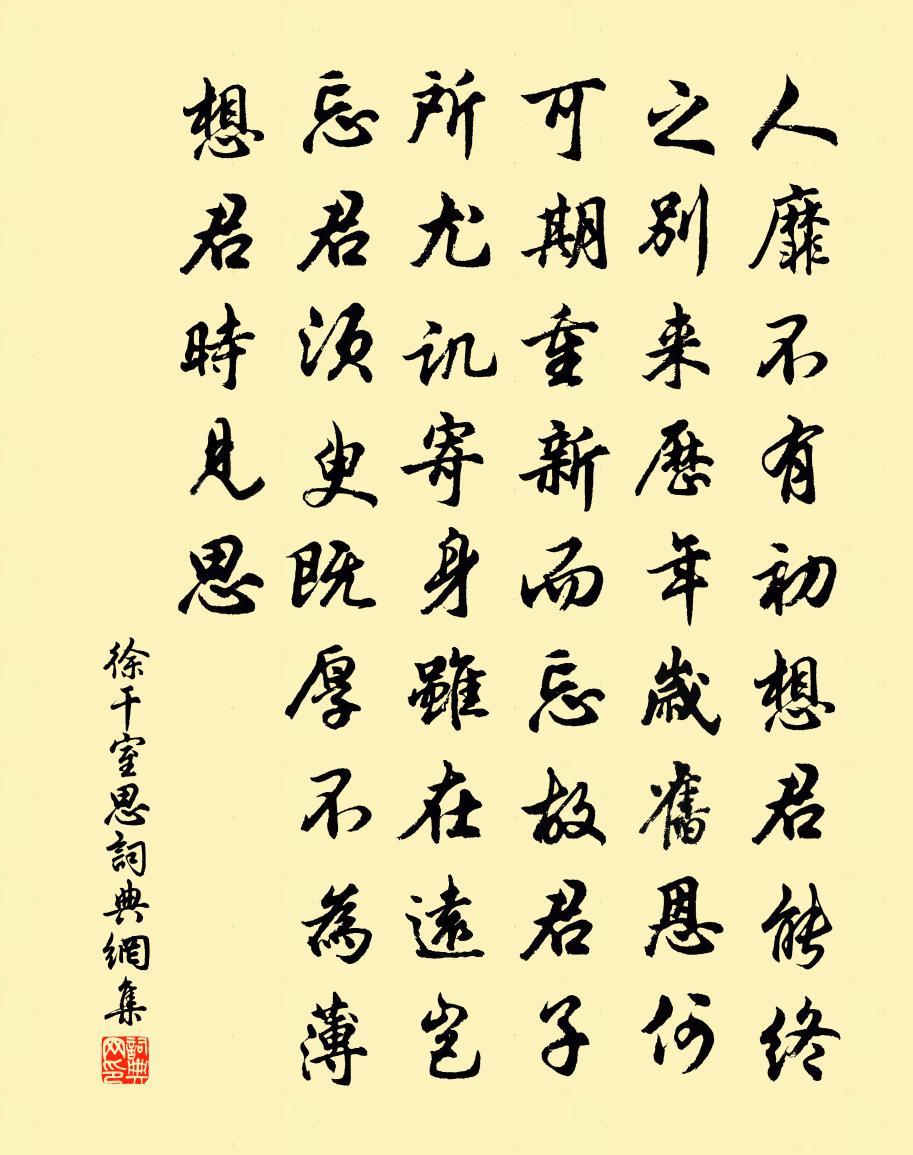 人靡不有初想君能终
之别来歷年歳舊恩何
可期重新而忘故君子
所尤讥寄身雖在遠岂
忘君须臾既厚不為薄
想君時見思
徐干室思詞典網集
詞典网印